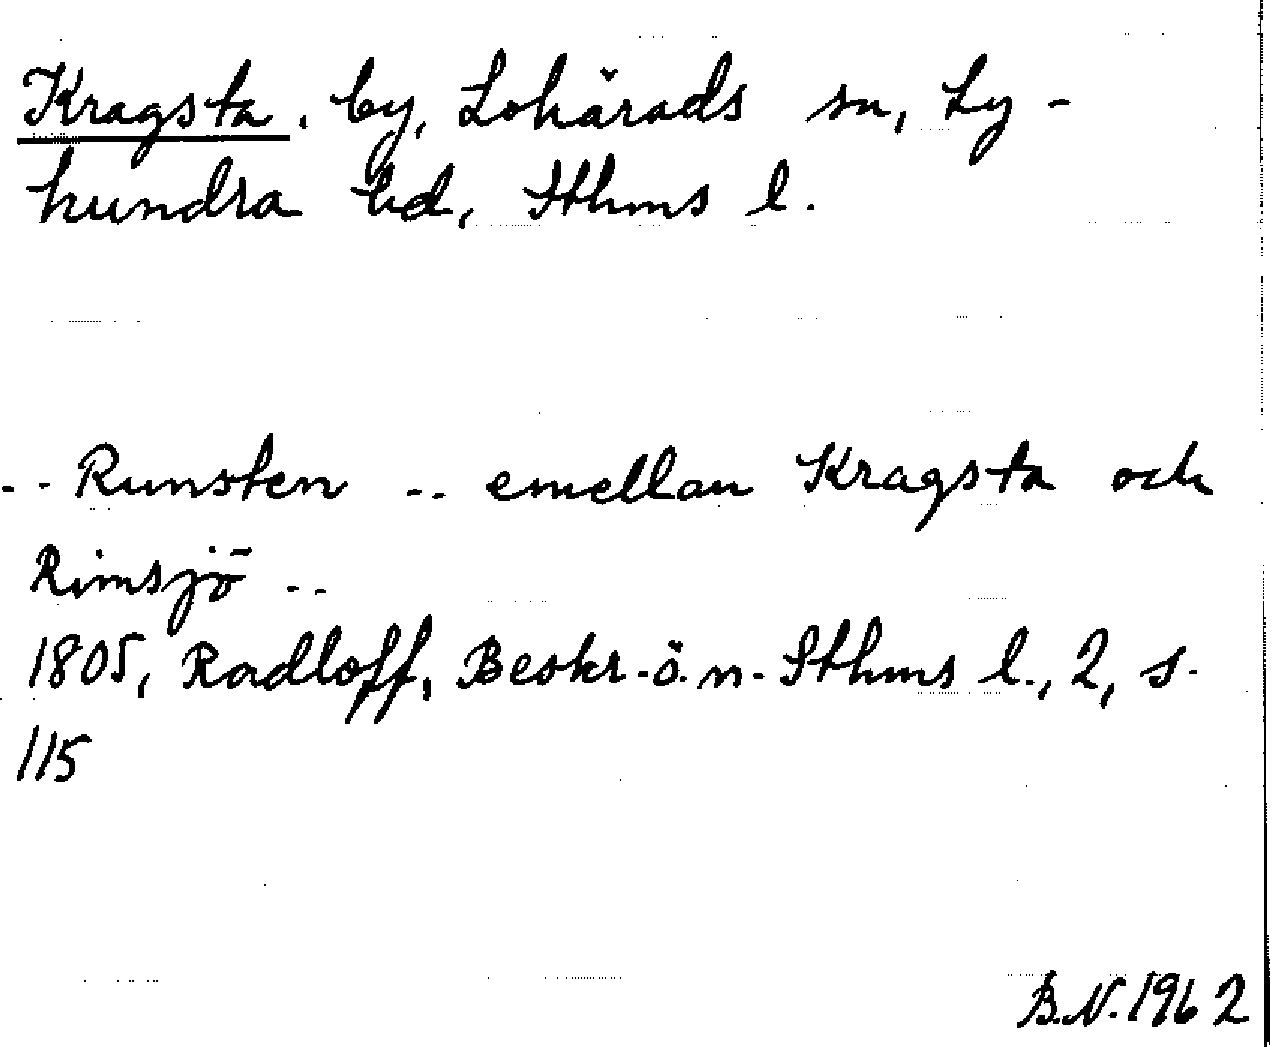 Kragsta, by, Lohärads sn, Ly-
hundra hd, Sthms l.
-- Runsten -- emellan Kragsta och
Rimsjö --
1805, Radloff, Beskr. ö. n. Sthms l., 2, s.
115
B.N. 1962